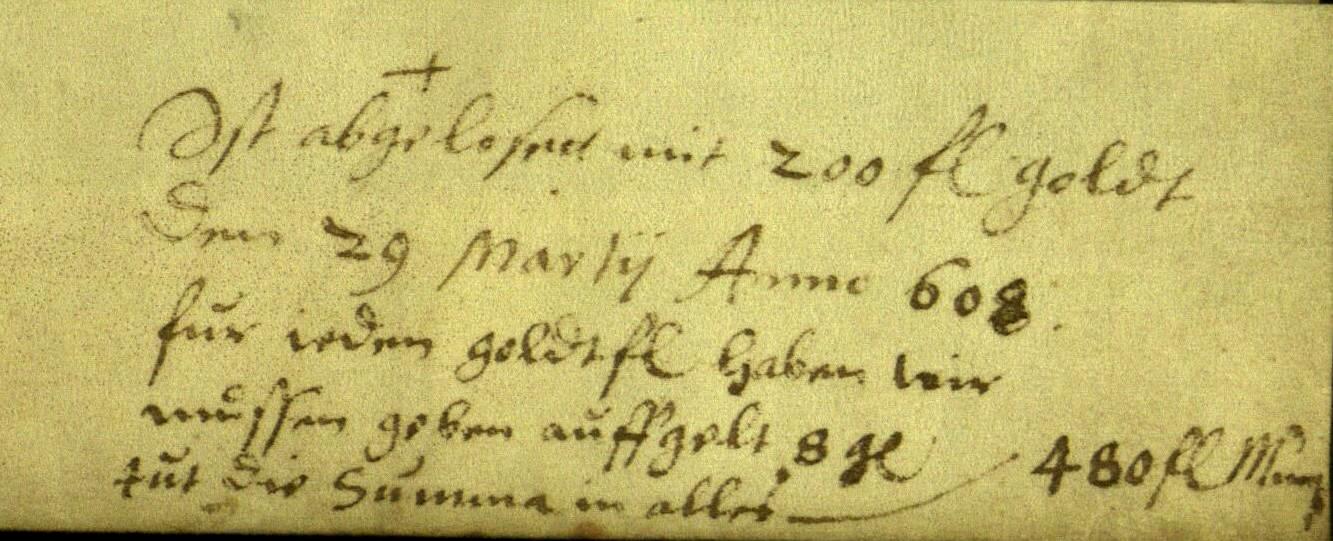 Ist abgelosett mit 200 fl goldt
Den 29 Martij Anno 608.
fur ieden goldtfl haben wir
mussen geben auffgelt 8 gl
tut die Summa in alles 480 fl Muntz